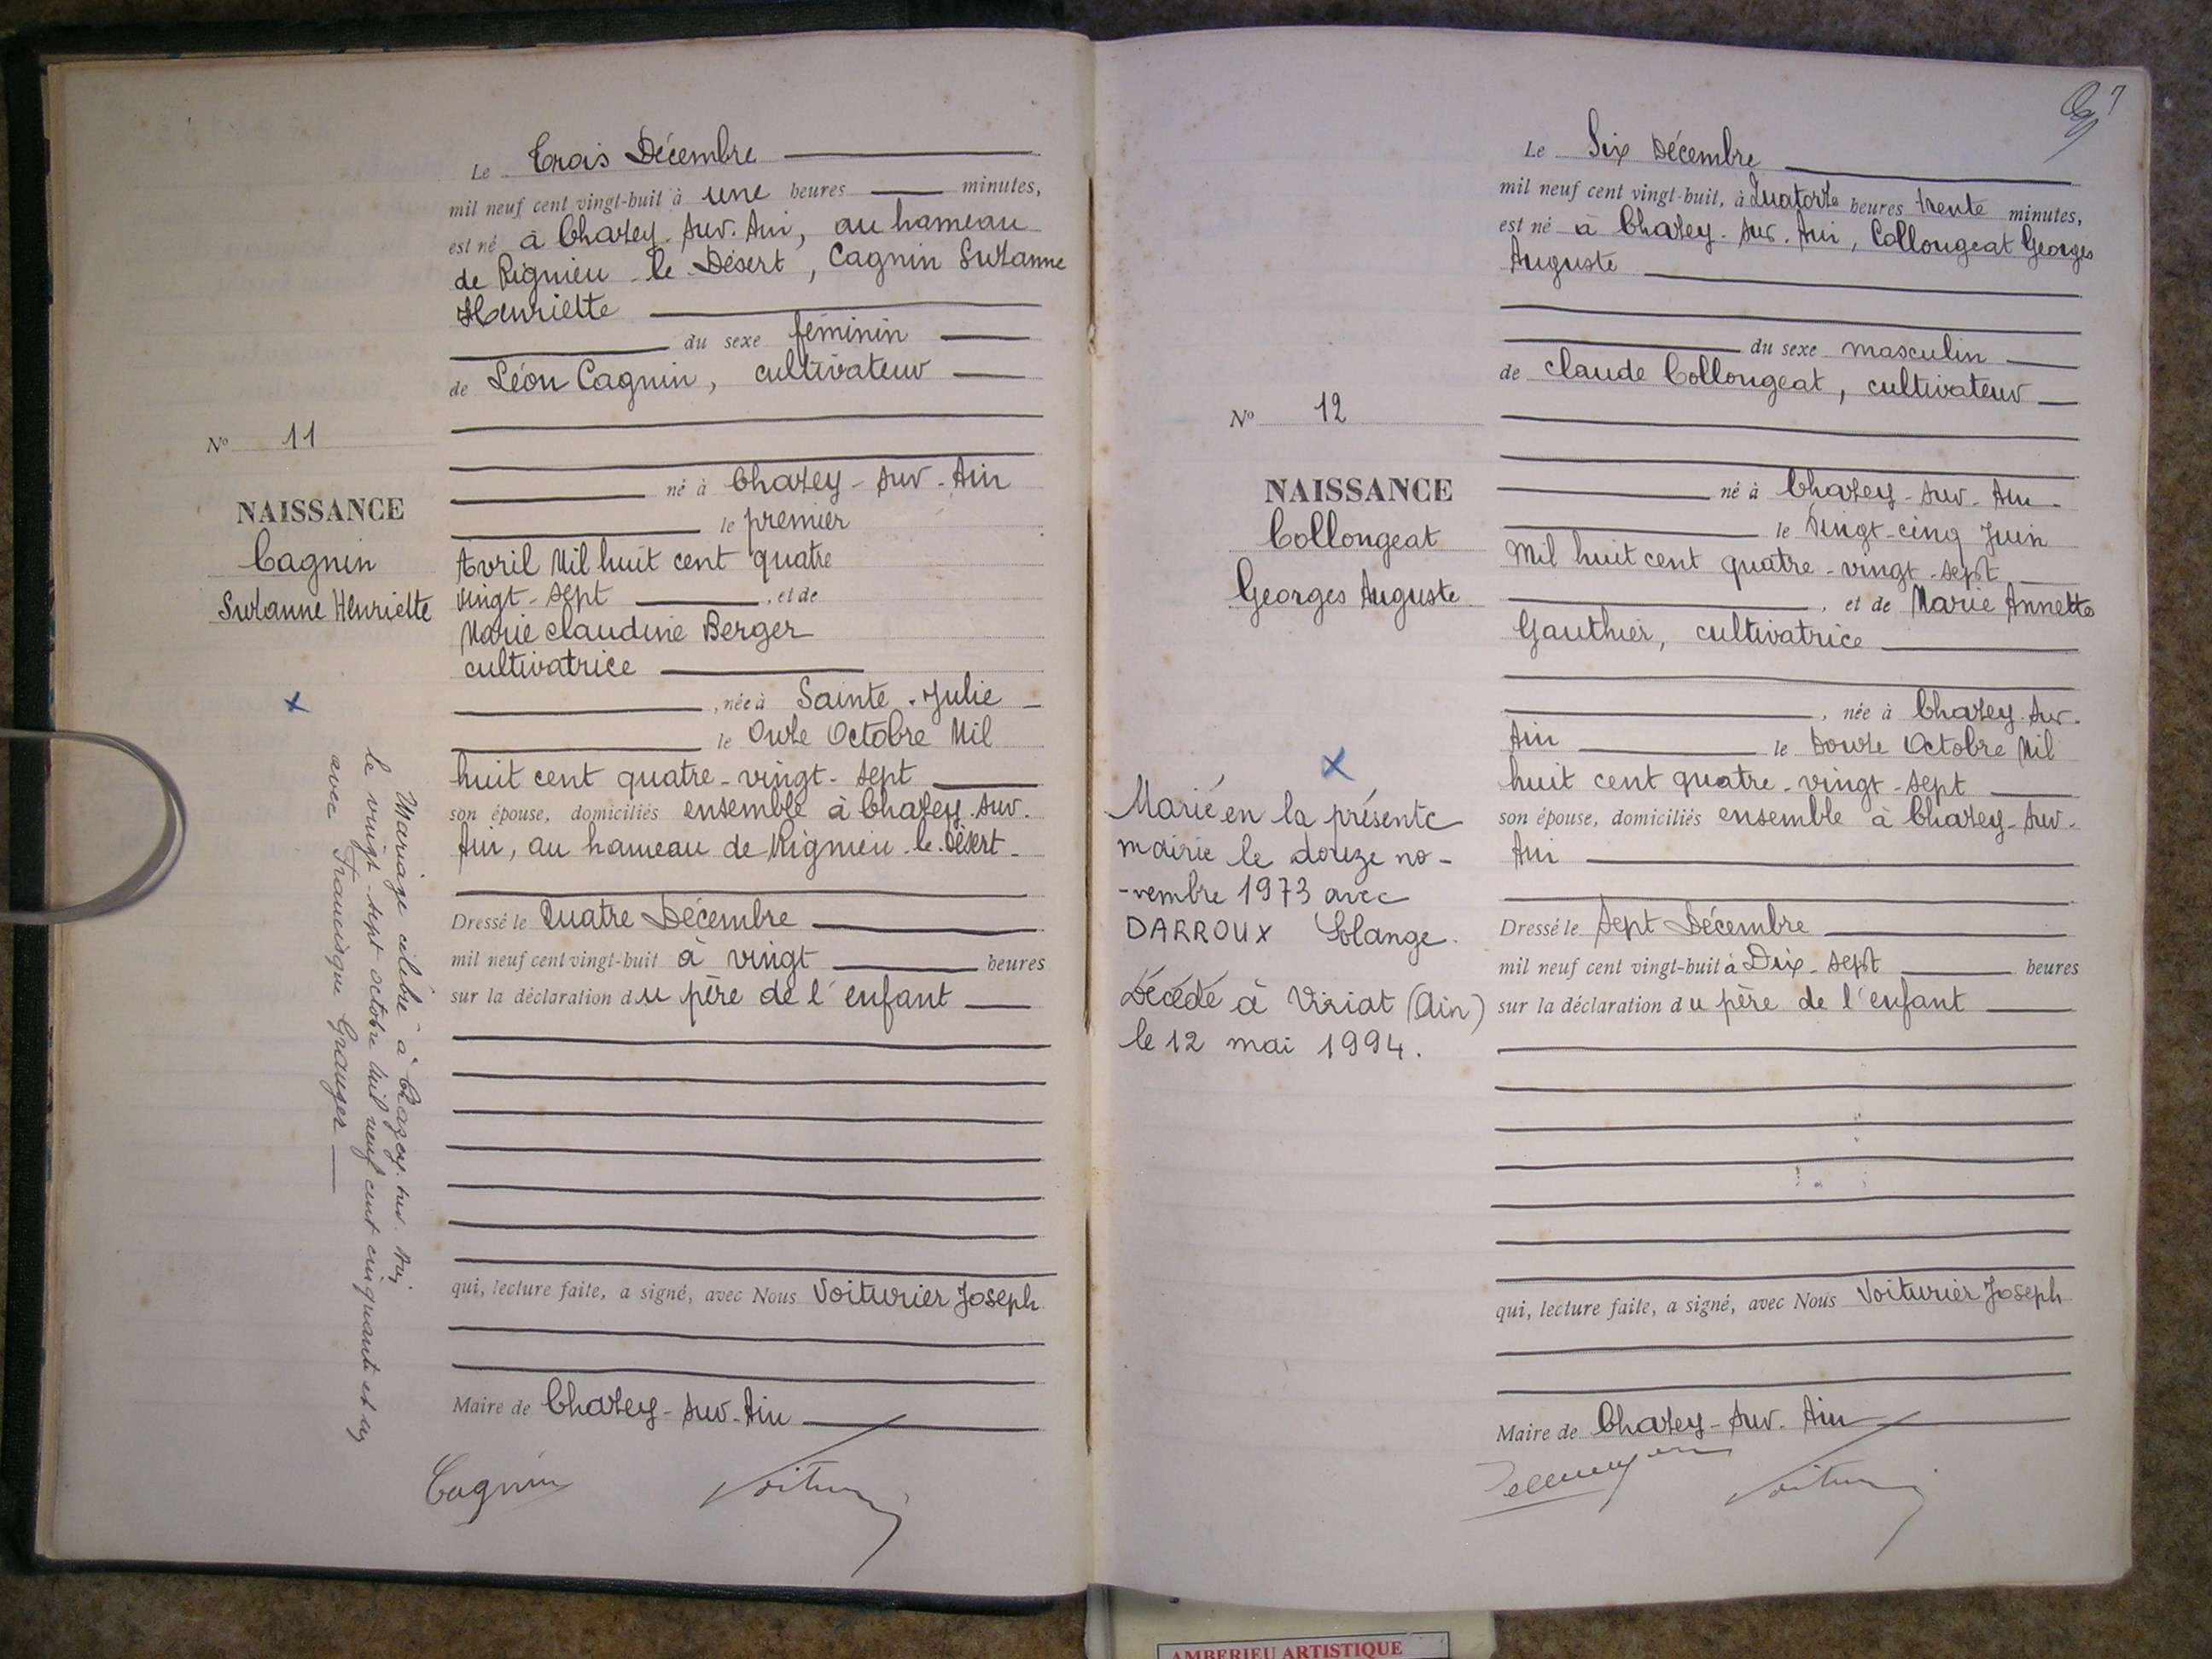 Le Trois Décembre
mil neuf cent vingt-huit à une heures minutes,
est né à Chazey-sur-Ain, au hameau
de Rignieu-le-Désert, Cagnin Suzanne
Henriette
du sexe féminin
de Léon Cagnin, cultivateur
N° 11
NAISSANCE
Cagnin
Suzanne Henriette
né à Chazey-sur-Ain
le premier
Avril Mil huit cent quatre
vingt-sept, et de
Marie Claudine Berger
cultivatrice
, née à Sainte-Julie
le Onze Octobre Mil
huit cent quatre-vingt-sept
son épouse, domiciliés ensemble à Chazey-sur-
Ain, au hameau de Rignieu-le-Désert
Mariage célébré à Chazey-sur-Ain
le vingt-sept octobre mil neuf cent cinquante et un
avec Francisque Granger
Dressé le Quatre Décembre
mil neuf cent vingt-huit à vingt heures
sur la déclaration du père de l'enfant
qui, lecture faite, a signé, avec Nous Voiturier Joseph
Maire de Chazey-sur-Ain
Cagnin
Le Six Décembre
mil neuf cent vingt-huit, à Quatorze heures trente minutes,
est né à Chazey-sur-Ain, Collongeat Georges
Auguste
du sexe masculin
de Claude Collongeat, cultivateur
N° 12
NAISSANCE
Collongeat
Georges Auguste
né à Chazey-sur-Ain
le Vingt-cinq Juin
Mil huit cent quatre-vingt-sept
, et de Marie Annette
Gauthier, cultivatrice
, née à Chazey-sur-
Ain le Douze Octobre Mil
huit cent quatre-vingt-sept
son épouse, domiciliés ensemble à Chazey-sur-
Ain
Marié en la présente
mairie le douze no-
-vembre 1973 avec
DARROUX Solange.
Décédé à Viriat (Ain)
le 12 mai 1994.
Dressé le Sept Décembre
mil neuf cent vingt-huit à Dix-sept heures
sur la déclaration du père de l'enfant
qui, lecture faite, a signé, avec Nous Voiturier Joseph
Maire de Chazey-sur-Ain
AMBERIEU ARTISTIQUE